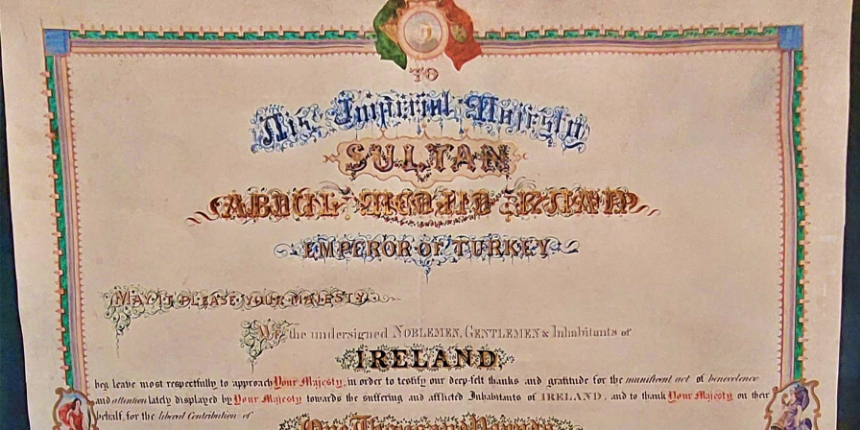 TO
His Imperial Majesty
SULTAN
ABDUL MEDJID KHAN
EMPEROR OF TURKEY
MAY IT PLEASE YOUR MAJESTY
We the undersigned NOBLEMEN, GENTLEMEN & Inhabitants of
IRELAND
beg leave most respectfully to approach Your Majesty, in order to testify our deep-felt thanks and gratitude for the munificent act of benevolence
and attention lately displayed by Your Majesty towards the suffering and afflicted Inhabitants of IRELAND, and to thank Your Majesty on their
behalf, for the liberal Contribution of
One Thousand Pounds